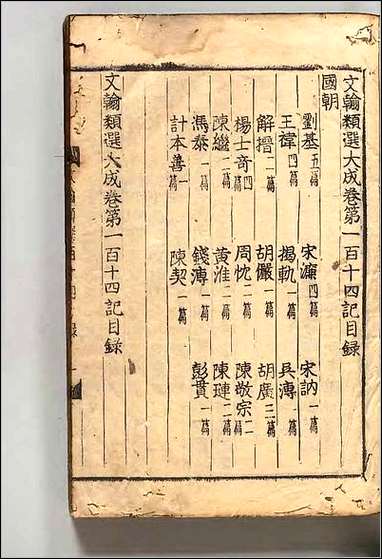 文翰類選大成卷第一百十四記目録
國朝
劉基五篇 宋濂四篇 宋訥一篇
王褘四篇 揭軌一篇 吳溥一篇
解縉二篇 胡儼一篇 胡廣三篇
楊士奇四篇 周忱一篇 陳敬宗二篇
陳繼二篇 黃淮一篇 陳璉二篇
馮泰一篇 錢溥一篇 彭貫一篇
計本善一篇 陳契一篇
文翰類選大成卷第一百十四記目録